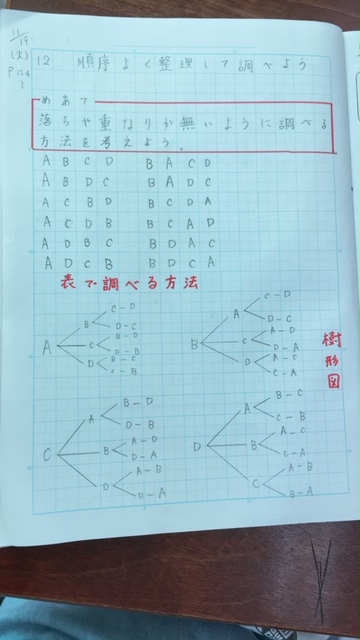 11/19
(火)
P154
~
12 順序よく整理して調べよう
めあて
落ちや重なりが無いように調べる
方法を考えよう。
A B C D B A C D
A B D C B A D C
A C B D B C D A
A C D B B C A D
A D B C B D A C
A D C B B D C A
表で調べる方法
樹形図
A
B C-D
D-C
C B-D
D-B
D B-C
C-B
B
A C-D
D-C
C A-D
D-A
D A-C
C-A
C
A B-D
D-B
B A-D
D-A
D A-B
B-A
D
A B-C
C-B
B A-C
C-A
C A-B
B-A